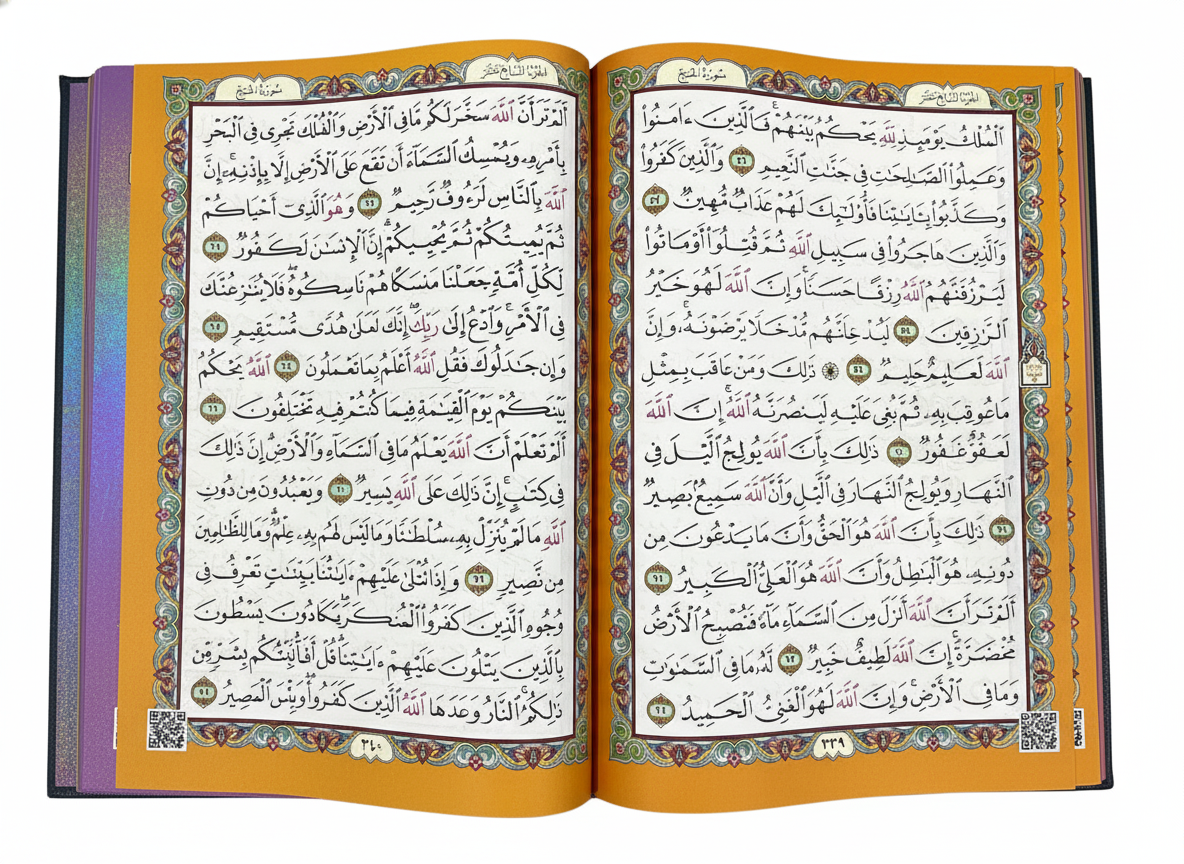 سُورَةُ الحَجّ
الجزء السابع عشر
ٱلْمُلْكُ يَوْمَئِذٍ لِّلَّهِ يَحْكُمُ بَيْنَهُمْ ۚ فَٱلَّذِينَ ءَامَنُوا۟
وَعَمِلُوا۟ ٱلصَّـٰلِحَـٰتِ فِى جَنَّـٰتِ ٱلنَّعِيمِ وَٱلَّذِينَ كَفَرُوا۟
وَكَذَّبُوا۟ بِـَٔايَـٰتِنَا فَأُو۟لَـٰٓئِكَ لَهُمْ عَذَابٌ مُّهِينٌ
وَٱلَّذِينَ هَاجَرُوا۟ فِى سَبِيلِ ٱللَّهِ ثُمَّ قُتِلُوٓا۟ أَوْ مَاتُوا۟
لَيَرْزُقَنَّهُمُ ٱللَّهُ رِزْقًا حَسَنًا ۚ وَإِنَّ ٱللَّهَ لَهُوَ خَيْرُ
ٱلرَّٰزِقِينَ لَيُدْخِلَنَّهُم مُّدْخَلًا يَرْضَوْنَهُۥ ۗ وَإِنَّ
ٱللَّهَ لَعَلِيمٌ حَلِيمٌ ۞ ذَٰلِكَ وَمَنْ عَاقَبَ بِمِثْلِ
مَا عُوقِبَ بِهِۦ ثُمَّ بُغِىَ عَلَيْهِ لَيَنصُرَنَّهُ ٱللَّهُ ۗ إِنَّ ٱللَّهَ
لَعَفُوٌّ غَفُورٌ ذَٰلِكَ بِأَنَّ ٱللَّهَ يُولِجُ ٱلَّيْلَ فِى
ٱلنَّهَارِ وَيُولِجُ ٱلنَّهَارَ فِى ٱلَّيْلِ وَأَنَّ ٱللَّهَ سَمِيعٌۢ بَصِيرٌ
ذَٰلِكَ بِأَنَّ ٱللَّهَ هُوَ ٱلْحَقُّ وَأَنَّ مَا يَدْعُونَ مِن
دُونِهِۦ هُوَ ٱلْبَـٰطِلُ وَأَنَّ ٱللَّهَ هُوَ ٱلْعَلِىُّ ٱلْكَبِيرُ
أَلَمْ تَرَ أَنَّ ٱللَّهَ أَنزَلَ مِنَ ٱلسَّمَآءِ مَآءً فَتُصْبِحُ ٱلْأَرْضُ
مُخْضَرَّةً ۗ إِنَّ ٱللَّهَ لَطِيفٌ خَبِيرٌ لَّهُۥ مَا فِى ٱلسَّمَـٰوَٰتِ
وَمَا فِى ٱلْأَرْضِ ۗ وَإِنَّ ٱللَّهَ لَهُوَ ٱلْغَنِىُّ ٱلْحَمِيدُ
٣٣٩
الجزء السابع عشر
سُورَةُ الحَجّ
أَلَمْ تَرَ أَنَّ ٱللَّهَ سَخَّرَ لَكُم مَّا فِى ٱلْأَرْضِ وَٱلْفُلْكَ تَجْرِى فِى ٱلْبَحْرِ
بِأَمْرِهِۦ وَيُمْسِكُ ٱلسَّمَآءَ أَن تَقَعَ عَلَى ٱلْأَرْضِ إِلَّا بِإِذْنِهِۦٓ ۗ إِنَّ
ٱللَّهَ بِٱلنَّاسِ لَرَءُوفٌ رَّحِيمٌ وَهُوَ ٱلَّذِىٓ أَحْيَاكُمْ
ثُمَّ يُمِيتُكُمْ ثُمَّ يُحْيِيكُمْ ۗ إِنَّ ٱلْإِنسَـٰنَ لَكَفُورٌ
لِّكُلِّ أُمَّةٍ جَعَلْنَا مَنسَكًا هُمْ نَاسِكُوهُ ۖ فَلَا يُنَـٰزِعُنَّكَ
فِى ٱلْأَمْرِ ۚ وَٱدْعُ إِلَىٰ رَبِّكَ ۖ إِنَّكَ لَعَلَىٰ هُدًى مُّسْتَقِيمٍ
وَإِن جَـٰدَلُوكَ فَقُلِ ٱللَّهُ أَعْلَمُ بِمَا تَعْمَلُونَ ٱللَّهُ يَحْكُمُ
بَيْنَكُمْ يَوْمَ ٱلْقِيَـٰمَةِ فِيمَا كُنتُمْ فِيهِ تَخْتَلِفُونَ
أَلَمْ تَعْلَمْ أَنَّ ٱللَّهَ يَعْلَمُ مَا فِى ٱلسَّمَآءِ وَٱلْأَرْضِ ۗ إِنَّ ذَٰلِكَ
فِى كِتَـٰبٍ ۚ إِنَّ ذَٰلِكَ عَلَى ٱللَّهِ يَسِيرٌ وَيَعْبُدُونَ مِن دُونِ
ٱللَّهِ مَا لَمْ يُنَزِّلْ بِهِۦ سُلْطَـٰنًا وَمَا لَيْسَ لَهُم بِهِۦ عِلْمٌ ۗ وَمَا لِلظَّـٰلِمِينَ
مِن نَّصِيرٍ وَإِذَا تُتْلَىٰ عَلَيْهِمْ ءَايَـٰتُنَا بَيِّنَـٰتٍ تَعْرِفُ فِى
وُجُوهِ ٱلَّذِينَ كَفَرُوا۟ ٱلْمُنكَرَ ۖ يَكَادُونَ يَسْطُونَ
بِٱلَّذِينَ يَتْلُونَ عَلَيْهِمْ ءَايَـٰتِنَا ۗ قُلْ أَفَأُنَبِّئُكُم بِشَرٍّ مِّن
ذَٰلِكُمُ ۗ ٱلنَّارُ وَعَدَهَا ٱللَّهُ ٱلَّذِينَ كَفَرُوا۟ ۖ وَبِئْسَ ٱلْمَصِيرُ
٣٤٠